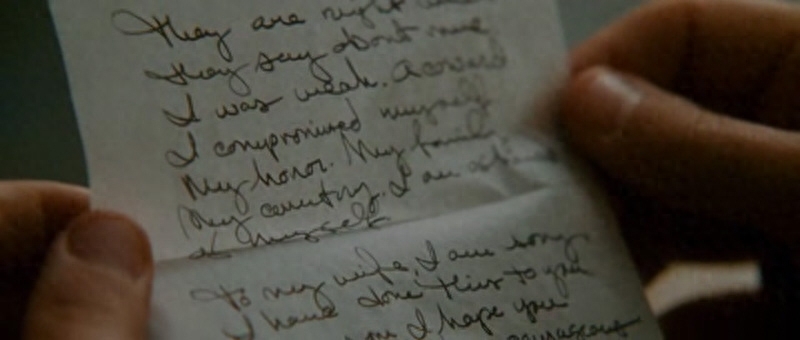 They are right
they say about me.
I was weak. A coward
I compromised myself
My honor. My family
My country. I am ashamed
of myself
to my wife, I am sorry
I have done this to you
I hope you
courageous